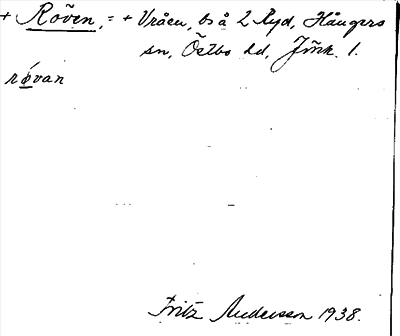 + Röven, = + Vråen, bs å 2 Ryd, Hångers
sn, Östbo hd, Jönk. l.
rǿvan
Fritz Andersson 1938.